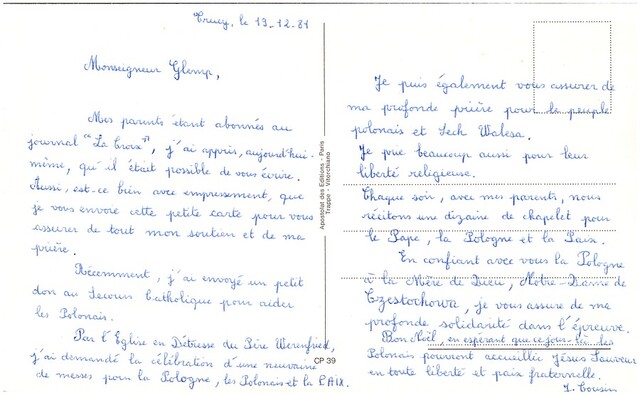 Crucy, le 13-12-81
Monseigneur Glemp,
Mes parents étant abonnés au
journal "La Croix", j'ai appris, aujourd'hui-
même, qu'il était possible de vous écrire.
Aussi, est-ce bien avec empressement, que
je vous envoie cette petite carte pour vous
assurer de tout mon soutien et de ma
prière.
Récemment, j'ai envoyé un petit
don au Secours Catholique pour aider
les Polonais.
Par l'Eglise en Détresse du Père Werenfried,
j'ai demandé la célébration d'une neuvaine
de messes pour la Pologne, les Polonais et la PAIX.
Apostolat des Editions - Paris
Trappe - Vitorchiano
CP 39
Je puis également vous assurer de
ma profonde prière pour le peuple
polonais et Lech Walesa.
Je prie beaucoup aussi pour leur
liberté religieuse.
Chaque soir, avec mes parents, nous
récitons une dizaine de chapelet pour
le Pape, la Pologne et la Paix.
En confiant avec vous la Pologne
à la Mère de Dieu, Notre-Dame de
Czestochowa, je vous assure de ma
profonde solidarité dans l'épreuve.
Bon Noël, en espérant que ce jour-là les
Polonais pourront accueillir Jésus Sauveur
en toute liberté et paix fraternelle.
J. Cousin